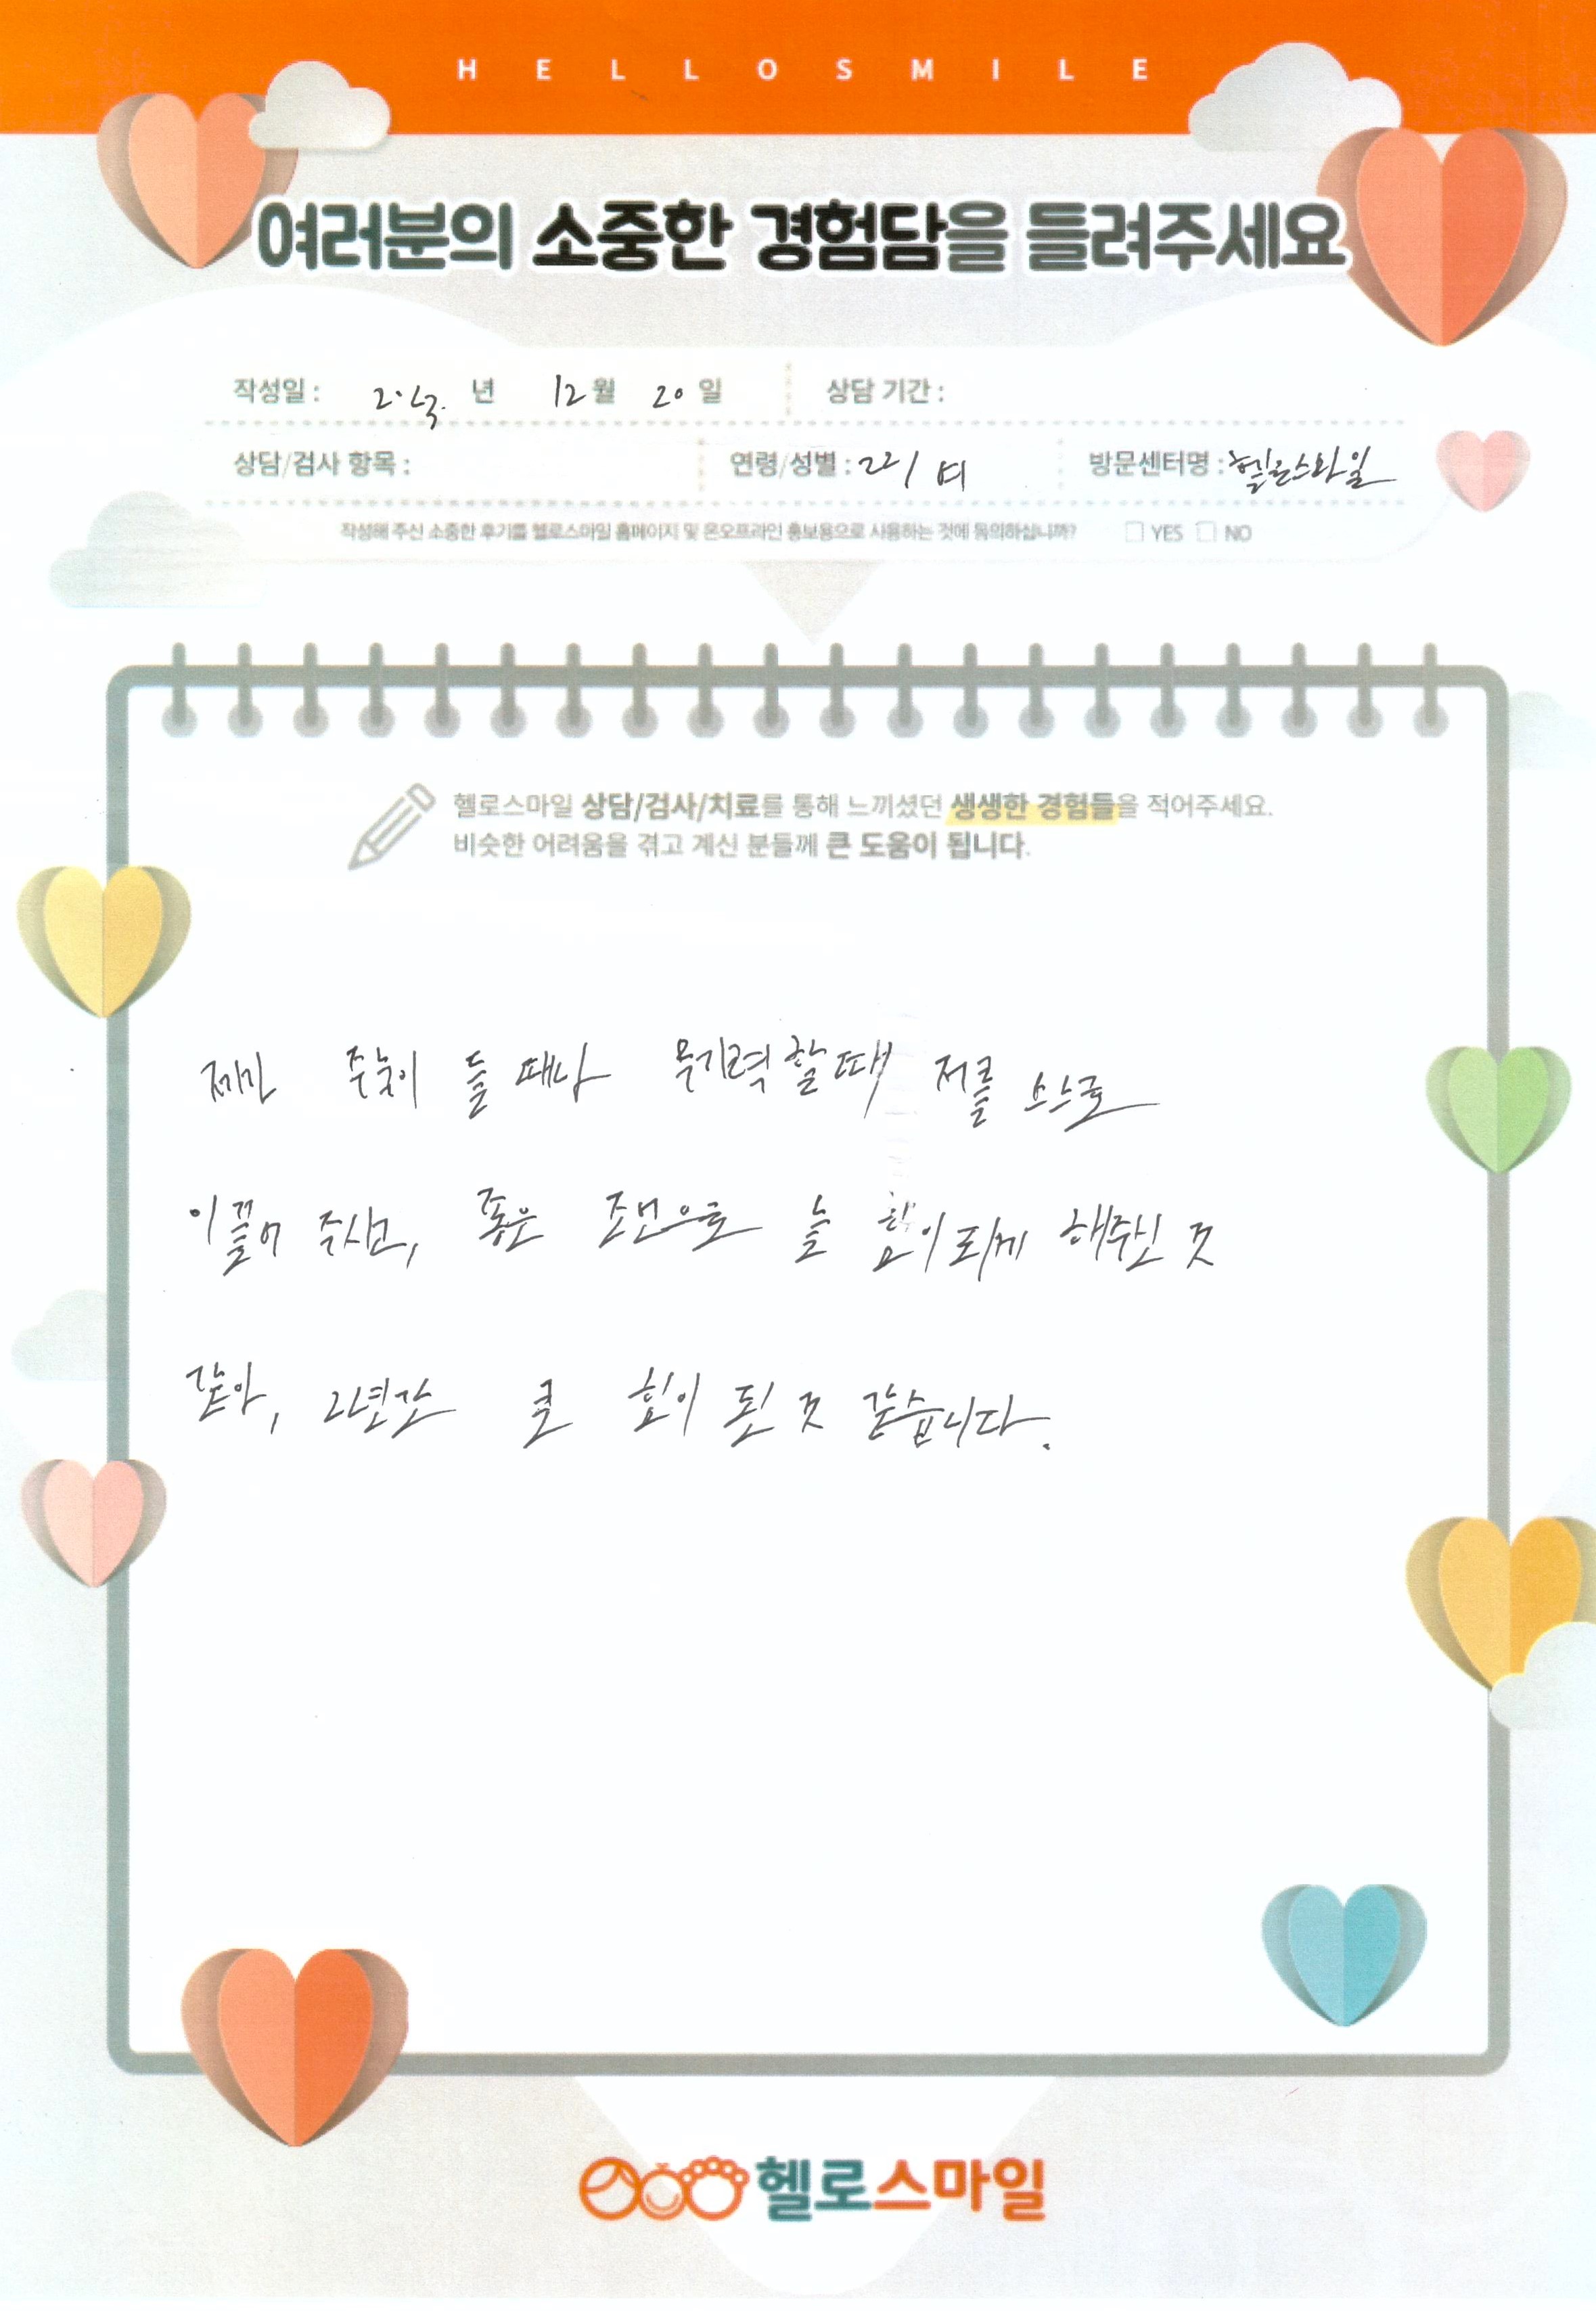 HELLOSMILE
여러분의 소중한 경험담을 들려주세요
작성일 : 년 12월 20일 상담 기간 :
상담/검사 항목 : 연령/성별 : 22/ 여 방문센터명 : 헬로스마일
작성해 주신 소중한 후기를 헬로스마일 홈페이지 및 온오프라인 홍보용으로 사용하는 것에 동의하십니까? YES NO
헬로스마일 상담/검사/치료를 통해 느끼셨던 생생한 경험들을 적어주세요.
비슷한 어려움을 겪고 계신 분들께 큰 도움이 됩니다.
제가 주눅이 들 때나 무기력할때 저를 스스로
이끌어 주시고, 좋은 조언으로 늘 힘이 되게 해주신 것
같아, 2년간 큰 힘이 된 것 같습니다.
헬로스마일